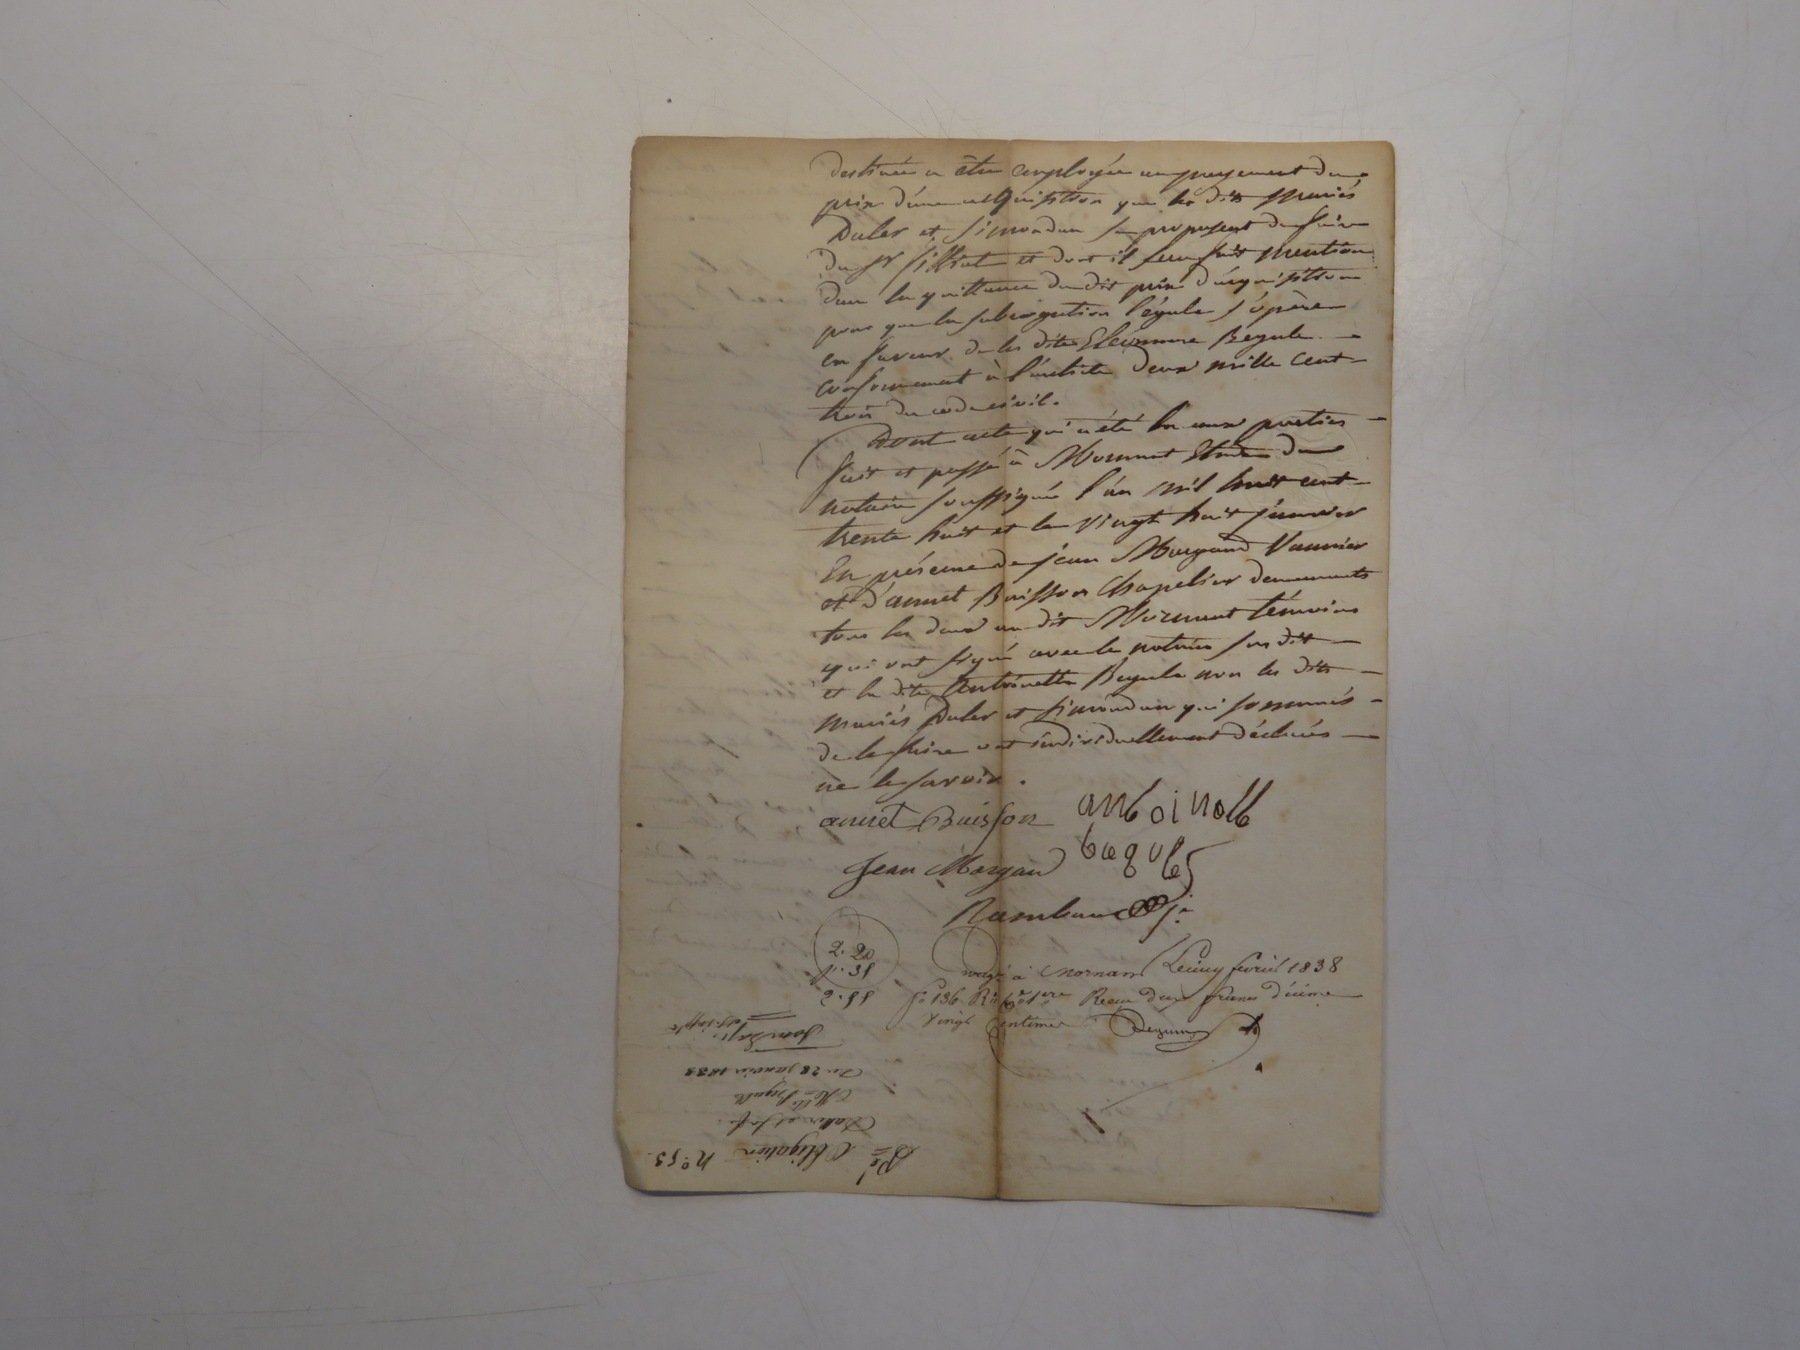 destinée a être employée au payement du
prix d'une acquisition que les dits mariés
Duler et Simondan se proposent de faire
du Sr et dont il sera fait mention
dans la quittance du dit prix d'acquisition
pour que la subrogation légale s'opère
en faveur de la dite Eléonnore Begule
conformement à l'article deux mille cent
trois du code civil.
Dont acte qui a été lu aux parties
fait et passé à Mornant Etude du
notaire soussigné l'an mil huit cent
trente huit et le vingt huit janvier
En présence de jean Morgand Vannier
et d'annet Buisson Chapelier demeurants
tous les deux au dit Mornant témoins
qui ont signé avec le notaire sus dit
et la dite Antoinette Begule non les dits
mariés Duler et Simondan qui sommés
de le faire ont individuellement déclarés
ne le savoir.
annet Buisson antoinette
begule
Jean Morgand
2.20
à Mornant Le cinq fevrier 1838
fo 136 Reçu deux francs décime
vingt centimes
Obligation No 53
Mlle Begule
Du 28 janvier 1838